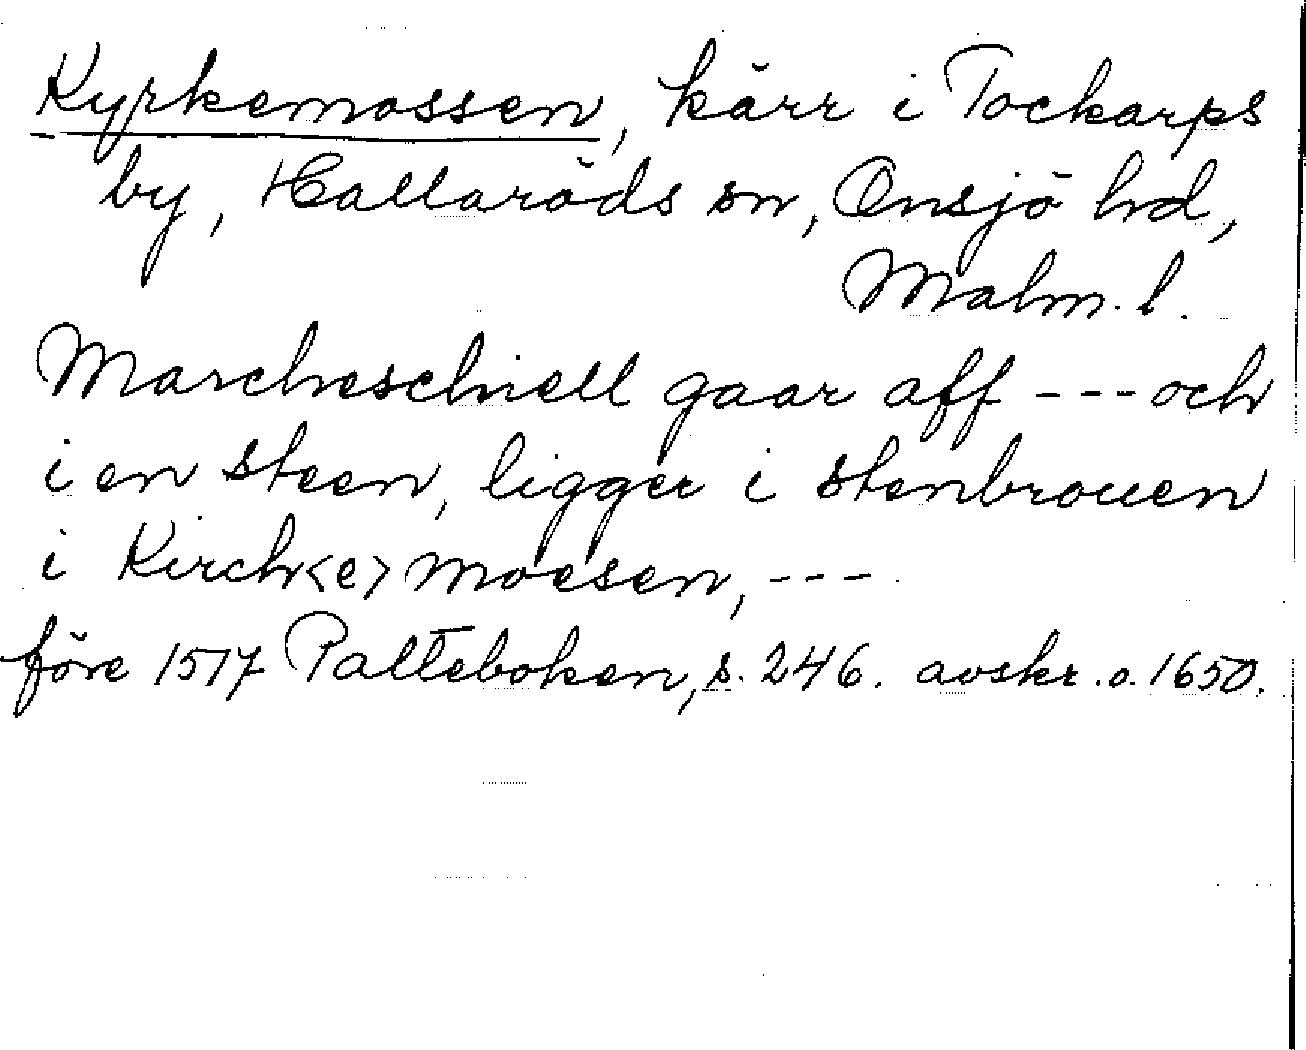 Kyrkemossen, kärr i Tockarps
by, Hallaröds sn, Onsjö hd,
Malm. l.
Marcheschiell gaar aff --- och
i en steen, ligger i stenbrouen
i Kirch<e>moesen, ---
före 1517 Palteboken, s. 246. avskr. o. 1650.